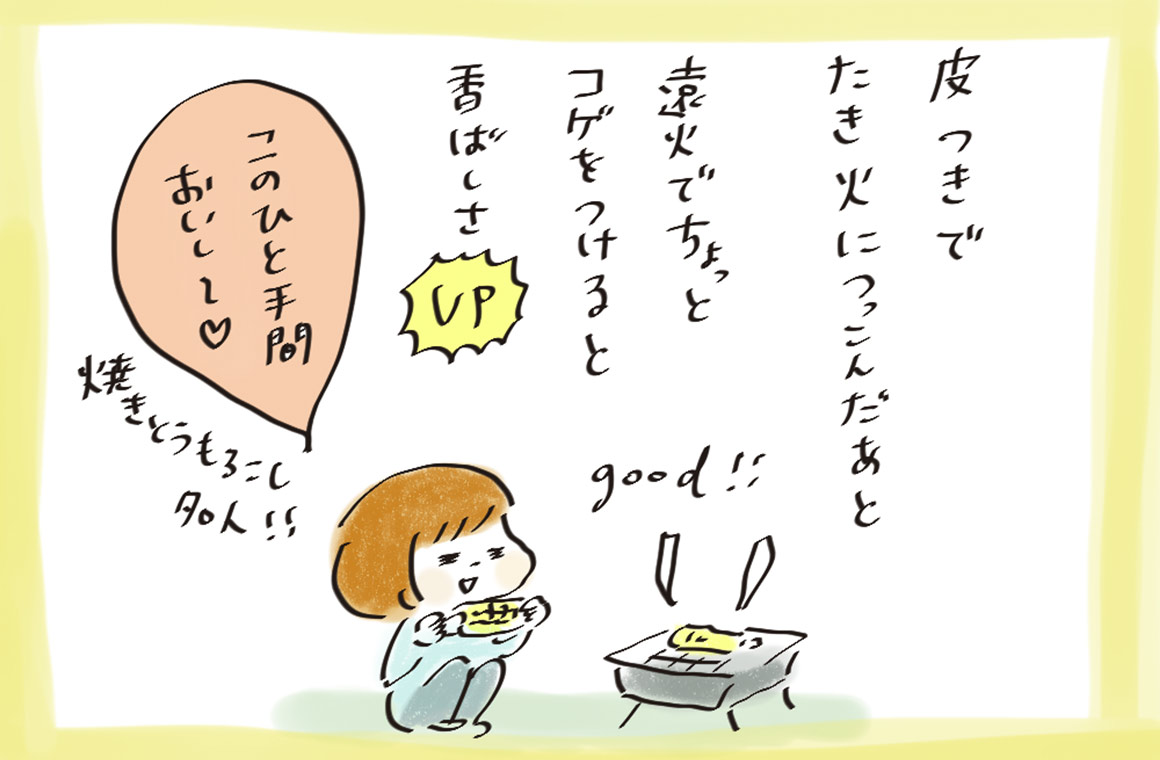 皮つきで
たき火につっこんだあと
遠火でちょっと
コゲをつけると
香ばしさ
UP
good!!
このひと手間
おいし〜♡
焼きとうもろこし
名人!!